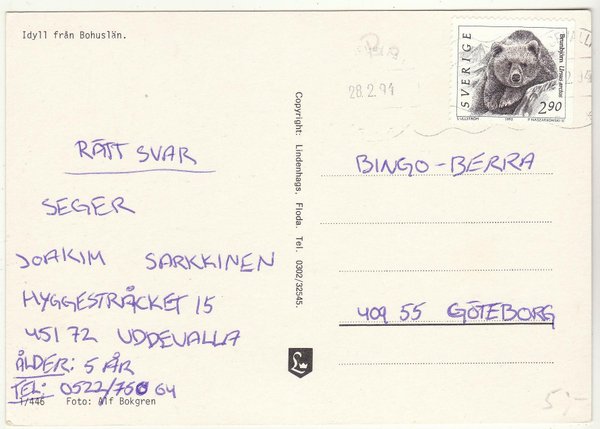 Idyll från Bohuslän.
28.2.94
SVERIGE
Brunbjörn Ursus arctos
2.90
RÄTT SVAR
SEGER
JOAKIM SARKKINEN
HYGGESTRÅCKET 15
451 72 UDDEVALLA
ÅLDER: 5 ÅR
TEL: 0522/760 64
1/446 Foto: Alf Bokgren
Copyright: Lindenhags, Floda. Tel. 0302/32545.
BINGO-BERRA
409 55 GÖTEBORG
5:-